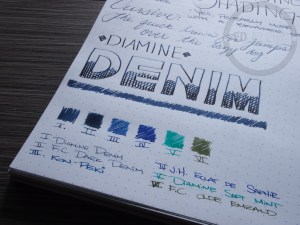 SHADING
Cursive:
The quick brown fox jumps
over the lazy dog
DIAMINE
DENIM
I. II. III. IV. V. VI.
I. DIAMINE DENIM
II. F.C. DARK DENIM
III. KON-PEKI
IV. J.H. ECLAT DE SAPHIR
V. DIAMINE SOFT MINT
VI. F.C. OLDE EMERALD